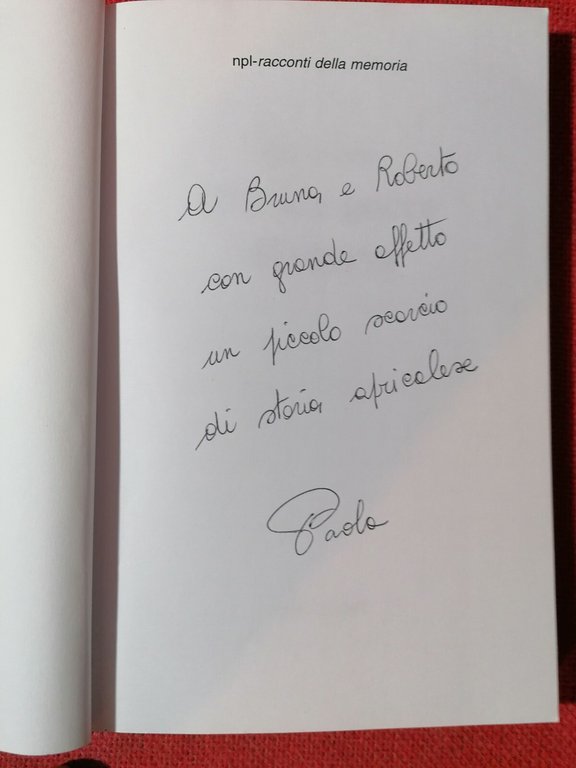 npl-racconti della memoria
A Bruna e Roberto
con grande affetto
un piccolo scorcio
di storia apricalese
Paola